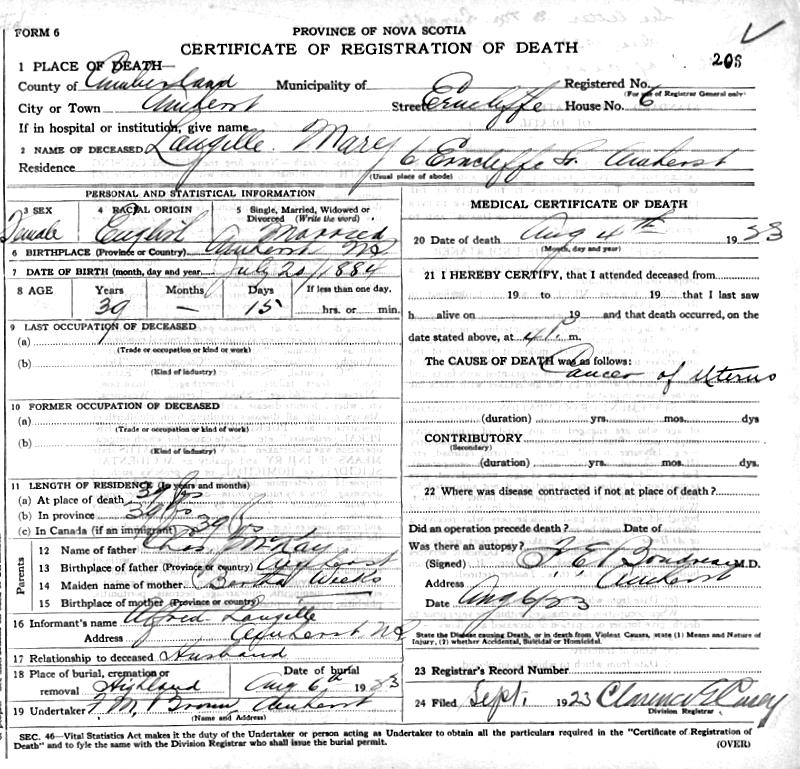 FORM 6
PROVINCE OF NOVA SCOTIA
CERTIFICATE OF REGISTRATION OF DEATH
205
1 PLACE OF DEATH—
County of Cumberland Municipality of Registered No.
(For use of Registrar General only)
City or Town Amherst Street Erncliffe House No. 6
If in hospital or institution, give name
2 NAME OF DECEASED Langille. Mary
Residence 6 Erncliffe St. Amherst
(Usual place of abode)
PERSONAL AND STATISTICAL INFORMATION
3 SEX 4 RACIAL ORIGIN 5 Single, Married, Widowed or Divorced (Write the word)
Female English Married
6 BIRTHPLACE (Province or Country) Amherst NS
7 DATE OF BIRTH (month, day and year) July 20/1884
8 AGE Years Months Days If less than one day.
39 — 15 hrs. or min.
9 LAST OCCUPATION OF DECEASED
(a)
(Trade or occupation or kind or work)
(b)
(Kind of industry)
10 FORMER OCCUPATION OF DECEASED
(a)
(Trade or occupation or kind of work)
(b)
(Kind of industry)
11 LENGTH OF RESIDENCE (In years and months)
(a) At place of death 39 yrs
(b) In province 39 yrs
(c) In Canada (if an immigrant) 39 yrs
Parents
12 Name of father Chas. McKay
13 Birthplace of father (Province or country) Amherst
14 Maiden name of mother Bertha Weeks
15 Birthplace of mother (Province or country)
16 Informant's name Alfred Langille
Address Amherst NS
17 Relationship to deceased Husband
18 Place of burial, cremation or removal Highland Date of burial Aug 6th 1923
19 Undertaker F.M. Brown Amherst
(Name and Address)
MEDICAL CERTIFICATE OF DEATH
20 Date of death Aug 4th 1923
(Month, day and year)
21 I HEREBY CERTIFY, that I attended deceased from
19 to 19 that I last saw
h alive on 19 and that death occurred, on the
date stated above, at 4 P. m.
The CAUSE OF DEATH was as follows:
Cancer of uterus
(duration) yrs. mos. dys
CONTRIBUTORY
(Secondary)
(duration) yrs. mos. dys.
22 Where was disease contracted if not at place of death?
Did an operation precede death? Date of
Was there an autopsy?
(Signed) F. E. Boudreau M.D.
Address Amherst
Date Aug 6/23
State the Disease causing Death, or in death from Violent Causes, state (1) Means and Nature of
Injury, (?) whether Accidental, Suicidal or Homicidal.
23 Registrar's Record Number
24 Filed Sept. 1923 Clarence E Casey
Division Registrar
SEC. 46—Vital Statistics Act makes it the duty of the Undertaker or person acting as Undertaker to obtain all the particulars required in the "Certificate of Registration of
Death" and to fyle the same with the Division Registrar who shall issue the burial permit. (OVER)